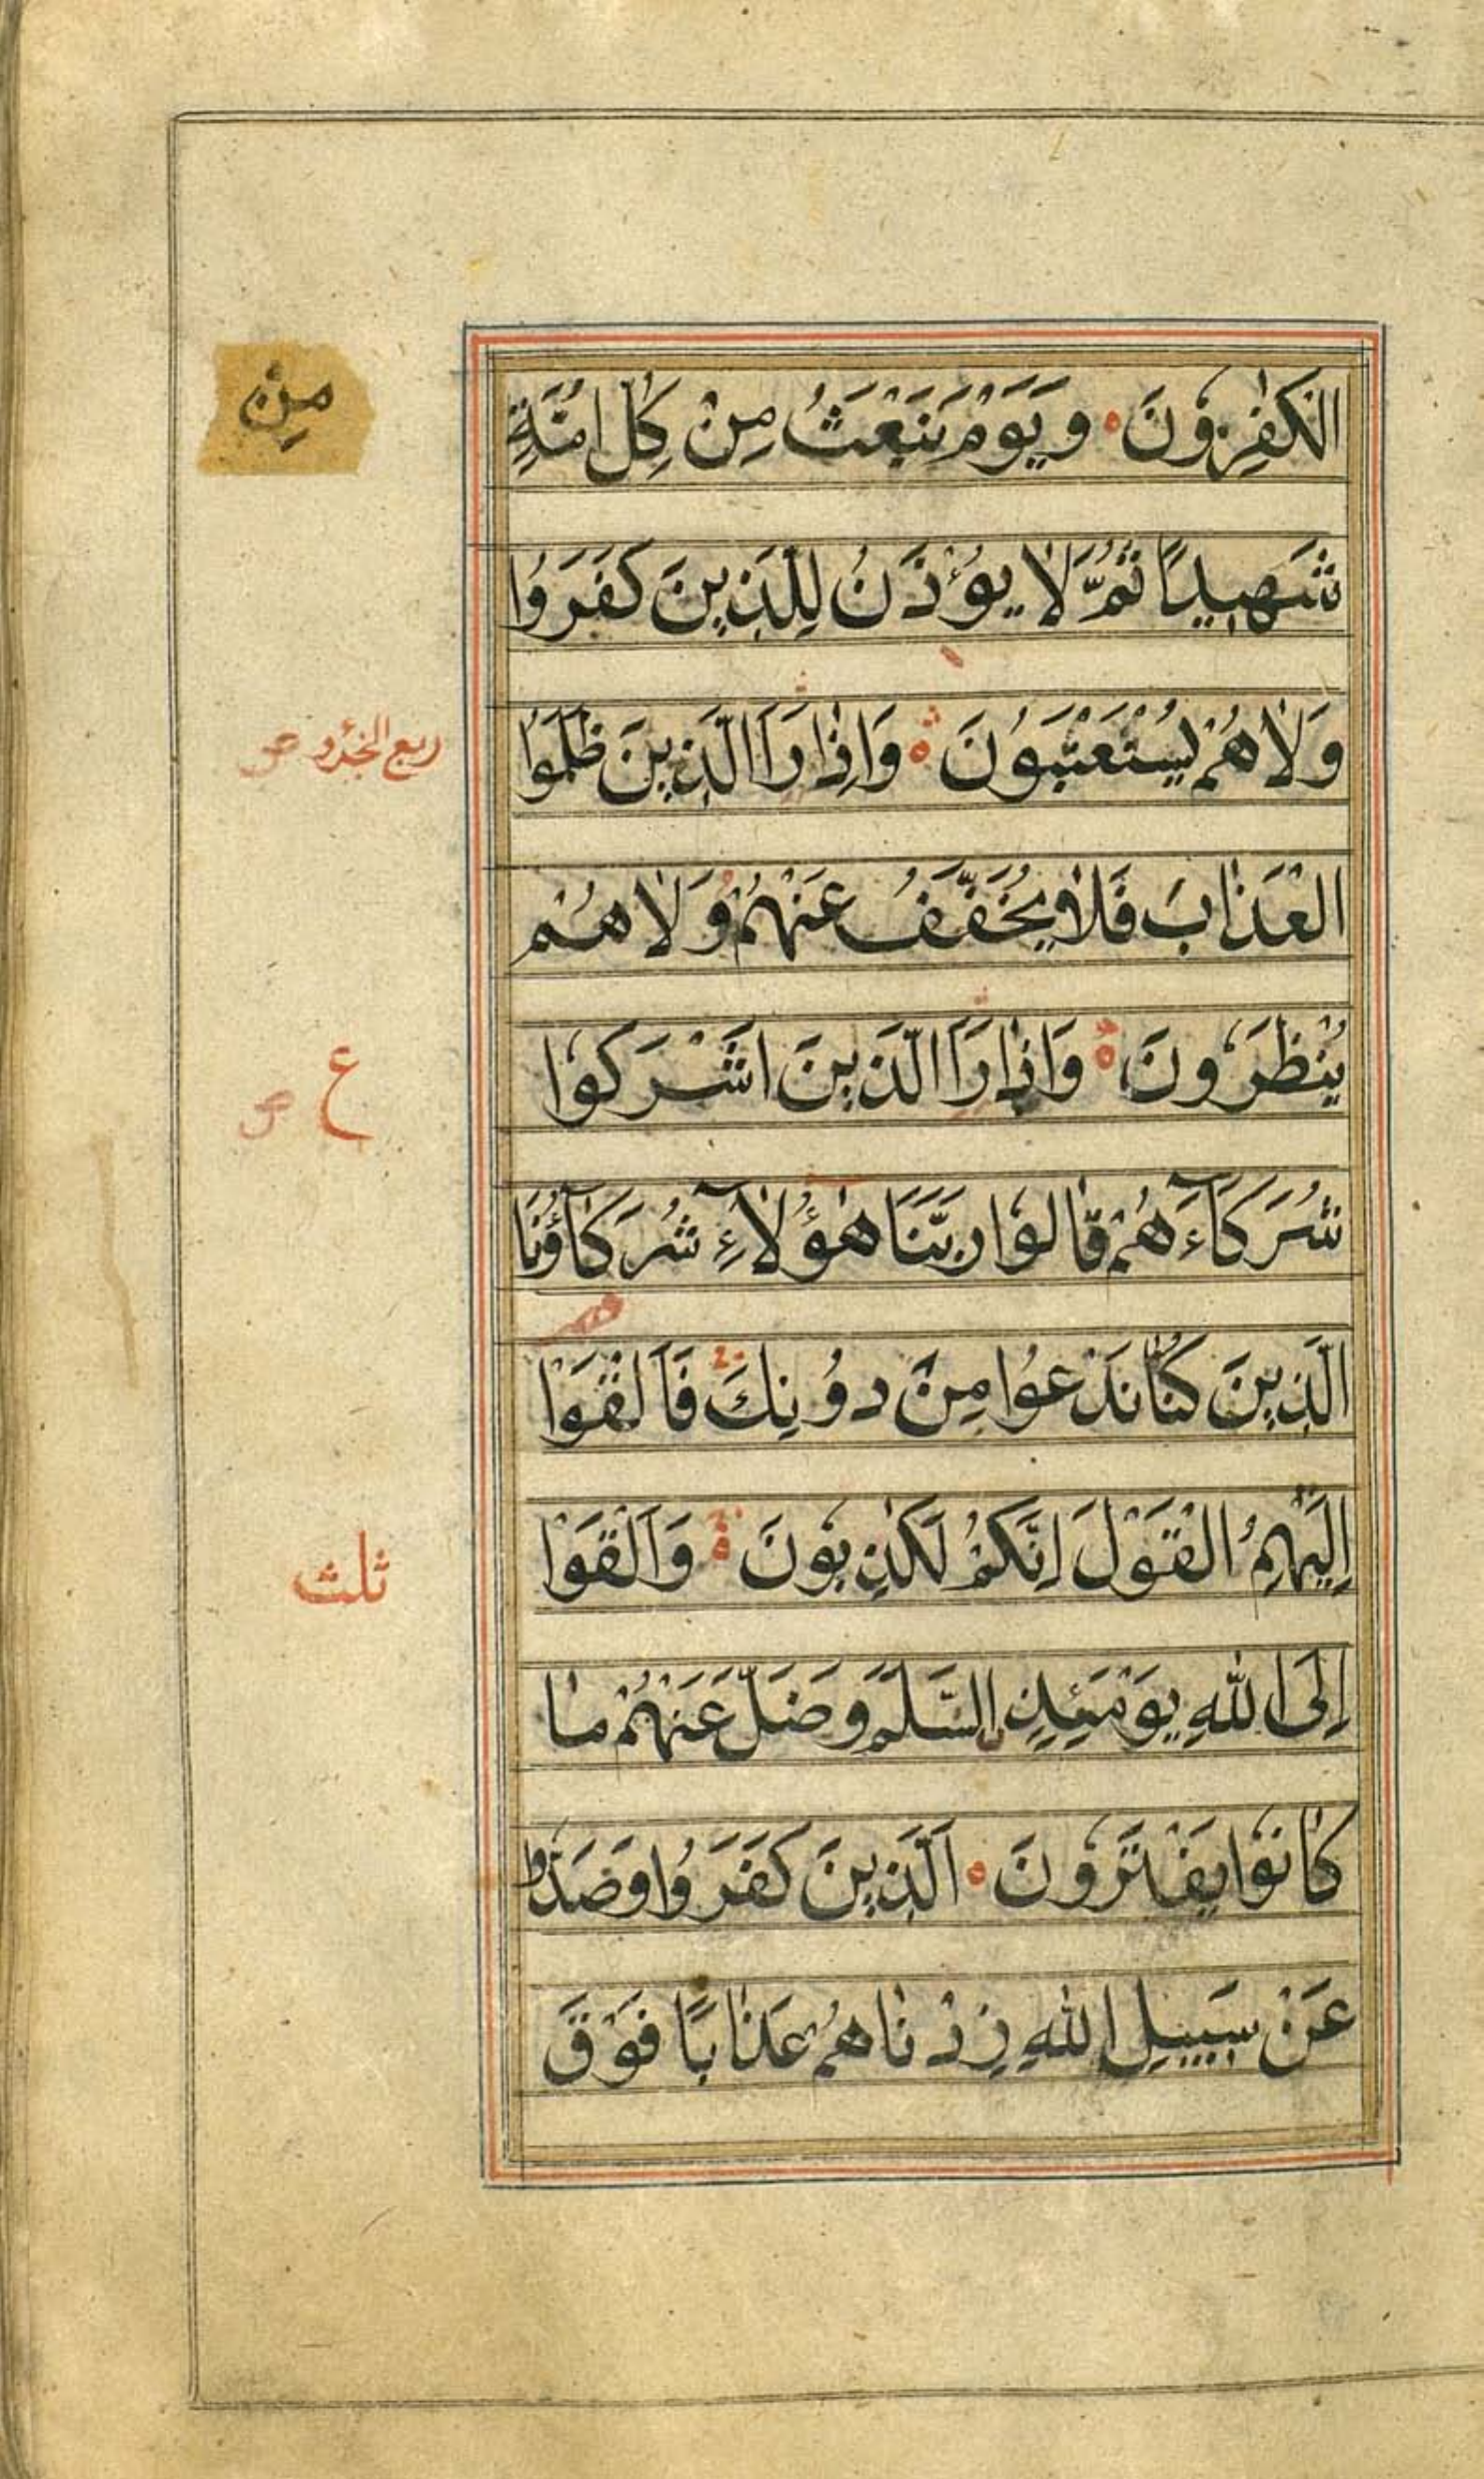 الْكٰفِرُوْنَ ۝ وَيَوْمَ نَبْعَثُ مِنْ كُلِّ اُمَّةٍ
مِنْ
شَهِيدًا ثُمَّ لَا يُؤْذَنُ لِلَّذِينَ كَفَرُوْا
وَلَا هُمْ يُسْتَعْتَبُوْنَ ۝ وَاِذَا رَاَ الَّذِينَ ظَلَمُوا
ربع الجزو
الْعَذَابَ فَلَا يُخَفَّفُ عَنْهُمْ وَلَا هُمْ
يُنْظَرُوْنَ ۝ وَاِذَا رَاَ الَّذِينَ اَشْرَكُوْا
ع
شُرَكَآءَهُمْ قَالُوْا رَبَّنَا هٰؤُلَآءِ شُرَكَآؤُنَا
الَّذِينَ كُنَّا نَدْعُوا مِنْ دُوْنِكَ فَاَلْقَوْا
اِلَيْهِمُ الْقَوْلَ اِنَّكُمْ لَكٰذِبُوْنَ ۝ وَاَلْقَوْا
ثلث
اِلَى اللّٰهِ يَوْمَئِذٍ السَّلَمَ وَضَلَّ عَنْهُمْ مَا
كَانُوْا يَفْتَرُوْنَ ۝ اَلَّذِينَ كَفَرُوْا وَصَدُّوْا
عَنْ سَبِيلِ اللّٰهِ زِدْنَاهُمْ عَذَابًا فَوْقَ